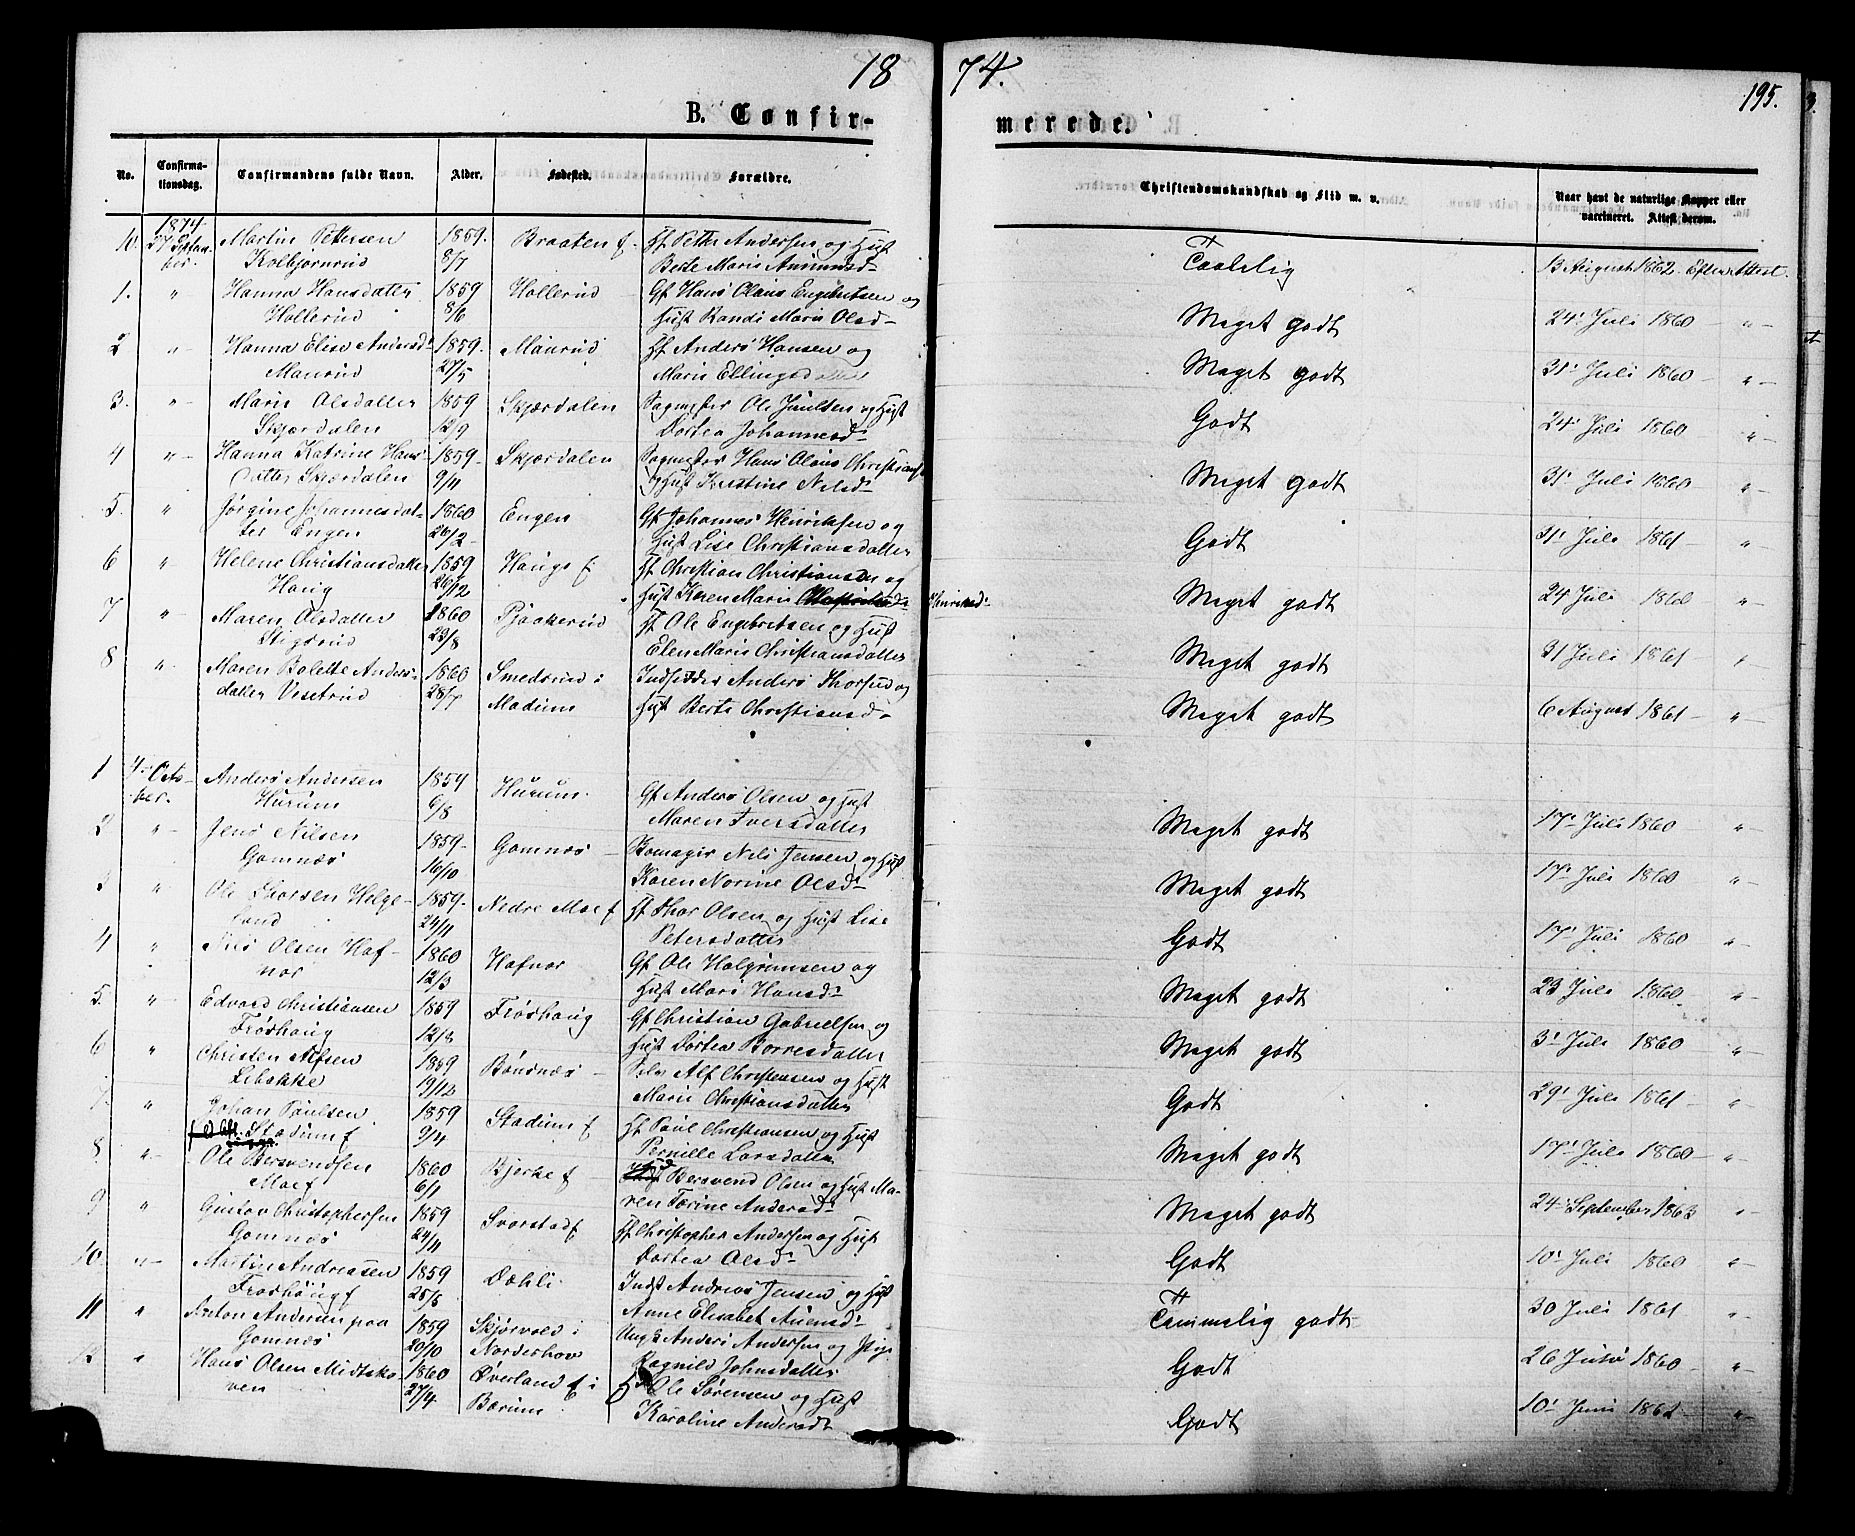 18 74. 195.
B. Confirmerede.
No. Confirmationsdag. Confirmandens fulde Navn. Alder. Fødested. Forældre. Christendomskundskab og Flid m. v. Naar havt de naturlige Kopper eller vaccineret. Attest derom.
1874
10. 27 Septem- Martin Pettersen 1859. Braaten f. Hf. Petter Andersen og Hust
ber. Kolbjørnrud 8/7 Berte Marie Amundsd- Taalelig 13 August 1862 Efter Attest.
1. " Hanna Hansdatter 1859 Hollerud Gf. Hans Olaus Engebretsen og
Hollerud 8/6 Hust Randi Marie Olsd- Meget godt 24' Juli 1860 "
2 " Hanna Elise Andersd' 1859. Maurud Hf. Anders Hansen og
Maurud 27/5 Marie Ellingsdatter Meget godt 31' Juli 1860 - "
3. " Marie Olsdatter 1859 Skjærdalen Sagmester Ole Juulsen og Hust
Skjærdalen 12/9 Dortea Johannesd- Godt 24' Juli 1860 "
4 " Hanna Katrine Hans 1859- Skjærdalen Sagmester Hans Olaus Christians
datter Skærdalen 9/11 og Hust Kristine Nilsd- Meget godt 31' Juli 1860 - "
5. " Jørgine Johannesdat- 1860 Engen Gf. Johannes Henriksen og
ter Engen 26/2 - Hust Lise Christiansdatter Godt 31' Juli 1861 - "
6 " Helene Christiansdatter 1859 Haugs f. Hf. Christian Christiansen og
Haug 26/12 Hust Karen Marie Henriksd' Meget godt 24 Juli 1860 - "
7 " Maren Olsdatter 1860 Pjaakerud Hf. Ole Engebretsen og Hust
Stigsrud 23/8 Elen Marie Christiansdatter Meget godt 31 Juli 1861 - "
8 " Maren Bolette Anders- 1860 Smedsrud i Indsidder Anders Thorsen og
datter Vesetrud 28/7 Modum Hust Berte Christiansd- Meget godt 6 August 1861 - "
1 4. Octo- Anders Andersen 1859 Hurum. Gf. Anders Olsen og Hust
ber. Hurum 6/8 Maren Iversdatter Meget godt 17' Juli 1860 "
2 " Jens Nilsen 1859- Gomnæs Nils Jensen og Hust
Gomnæs 16/10 Karen Norine Olsd- Meget godt 17' Juli 1860 "
3 " Ole Thorsen Helge- 1859- Nedre Moe f Hf. Thor Olsen og Hust Lise
land 24/11 Petersdatter Godt 17' Juli 1860 "
4 " Olsen Haf- 1860 Hafnor Gf. Ole Halgrimsen og
nor 12/3 Hust Mari Hansd- Meget godt 23 Juli 1860 "
5. " Edvard Christiansen 1859 Frøshaug Gf. Christian Gabrielsen og
Frøshaug 12/8 Hust Dortea Borresdatter Meget godt 3' Juli 1860 "
6 " Christen Alfsen 1859 Bønsnæs - Alf Christensen og Hust
Libakke 19/12 Marie Christiansdatter Godt 29' Juli 1861 "
7. " Johan Paulsen 1859 Stadum f Hf. Paul Christiansen og Hust
Stadum f 9/4 Pernille Larsdatter Meget godt 17' Juli 1860 - "
8. " Ole Bersvendsen 1860 Bjerke f - Bersvend Olsen og Hust Ma-
Moe f 6/1 ren Torine Andersd- Meget godt 24' September 1863 "
9 " Gustav Christophersen 1859 Svarstad f Hf. Christopher Andersen og Hust
Gomnæs 24/11 Dortea Olsd- Godt 10' Juli 1860 "
10. " Martin Andreasen 1859 Dæhli Indst Andreas Jensen og Hust
Frøshaug f 25/3 Anne Elisabet Auensd- Temmelig godt 30 Juli 1861 "
11 " Anton Andersen paa 1859 Skjørvold i Ungk Anders Andersen og Pige
Gomnæs 20/10 Norderhov Ragnild Johnsdatter Godt 26 1860 "
12 " Hans Olsen Midtsko- 1860 Øverland f. i Hf. Ole Sørensen og Hust
ven 27/4 Bærum Karoline Andersdt Godt 10' Juni 1862 - "